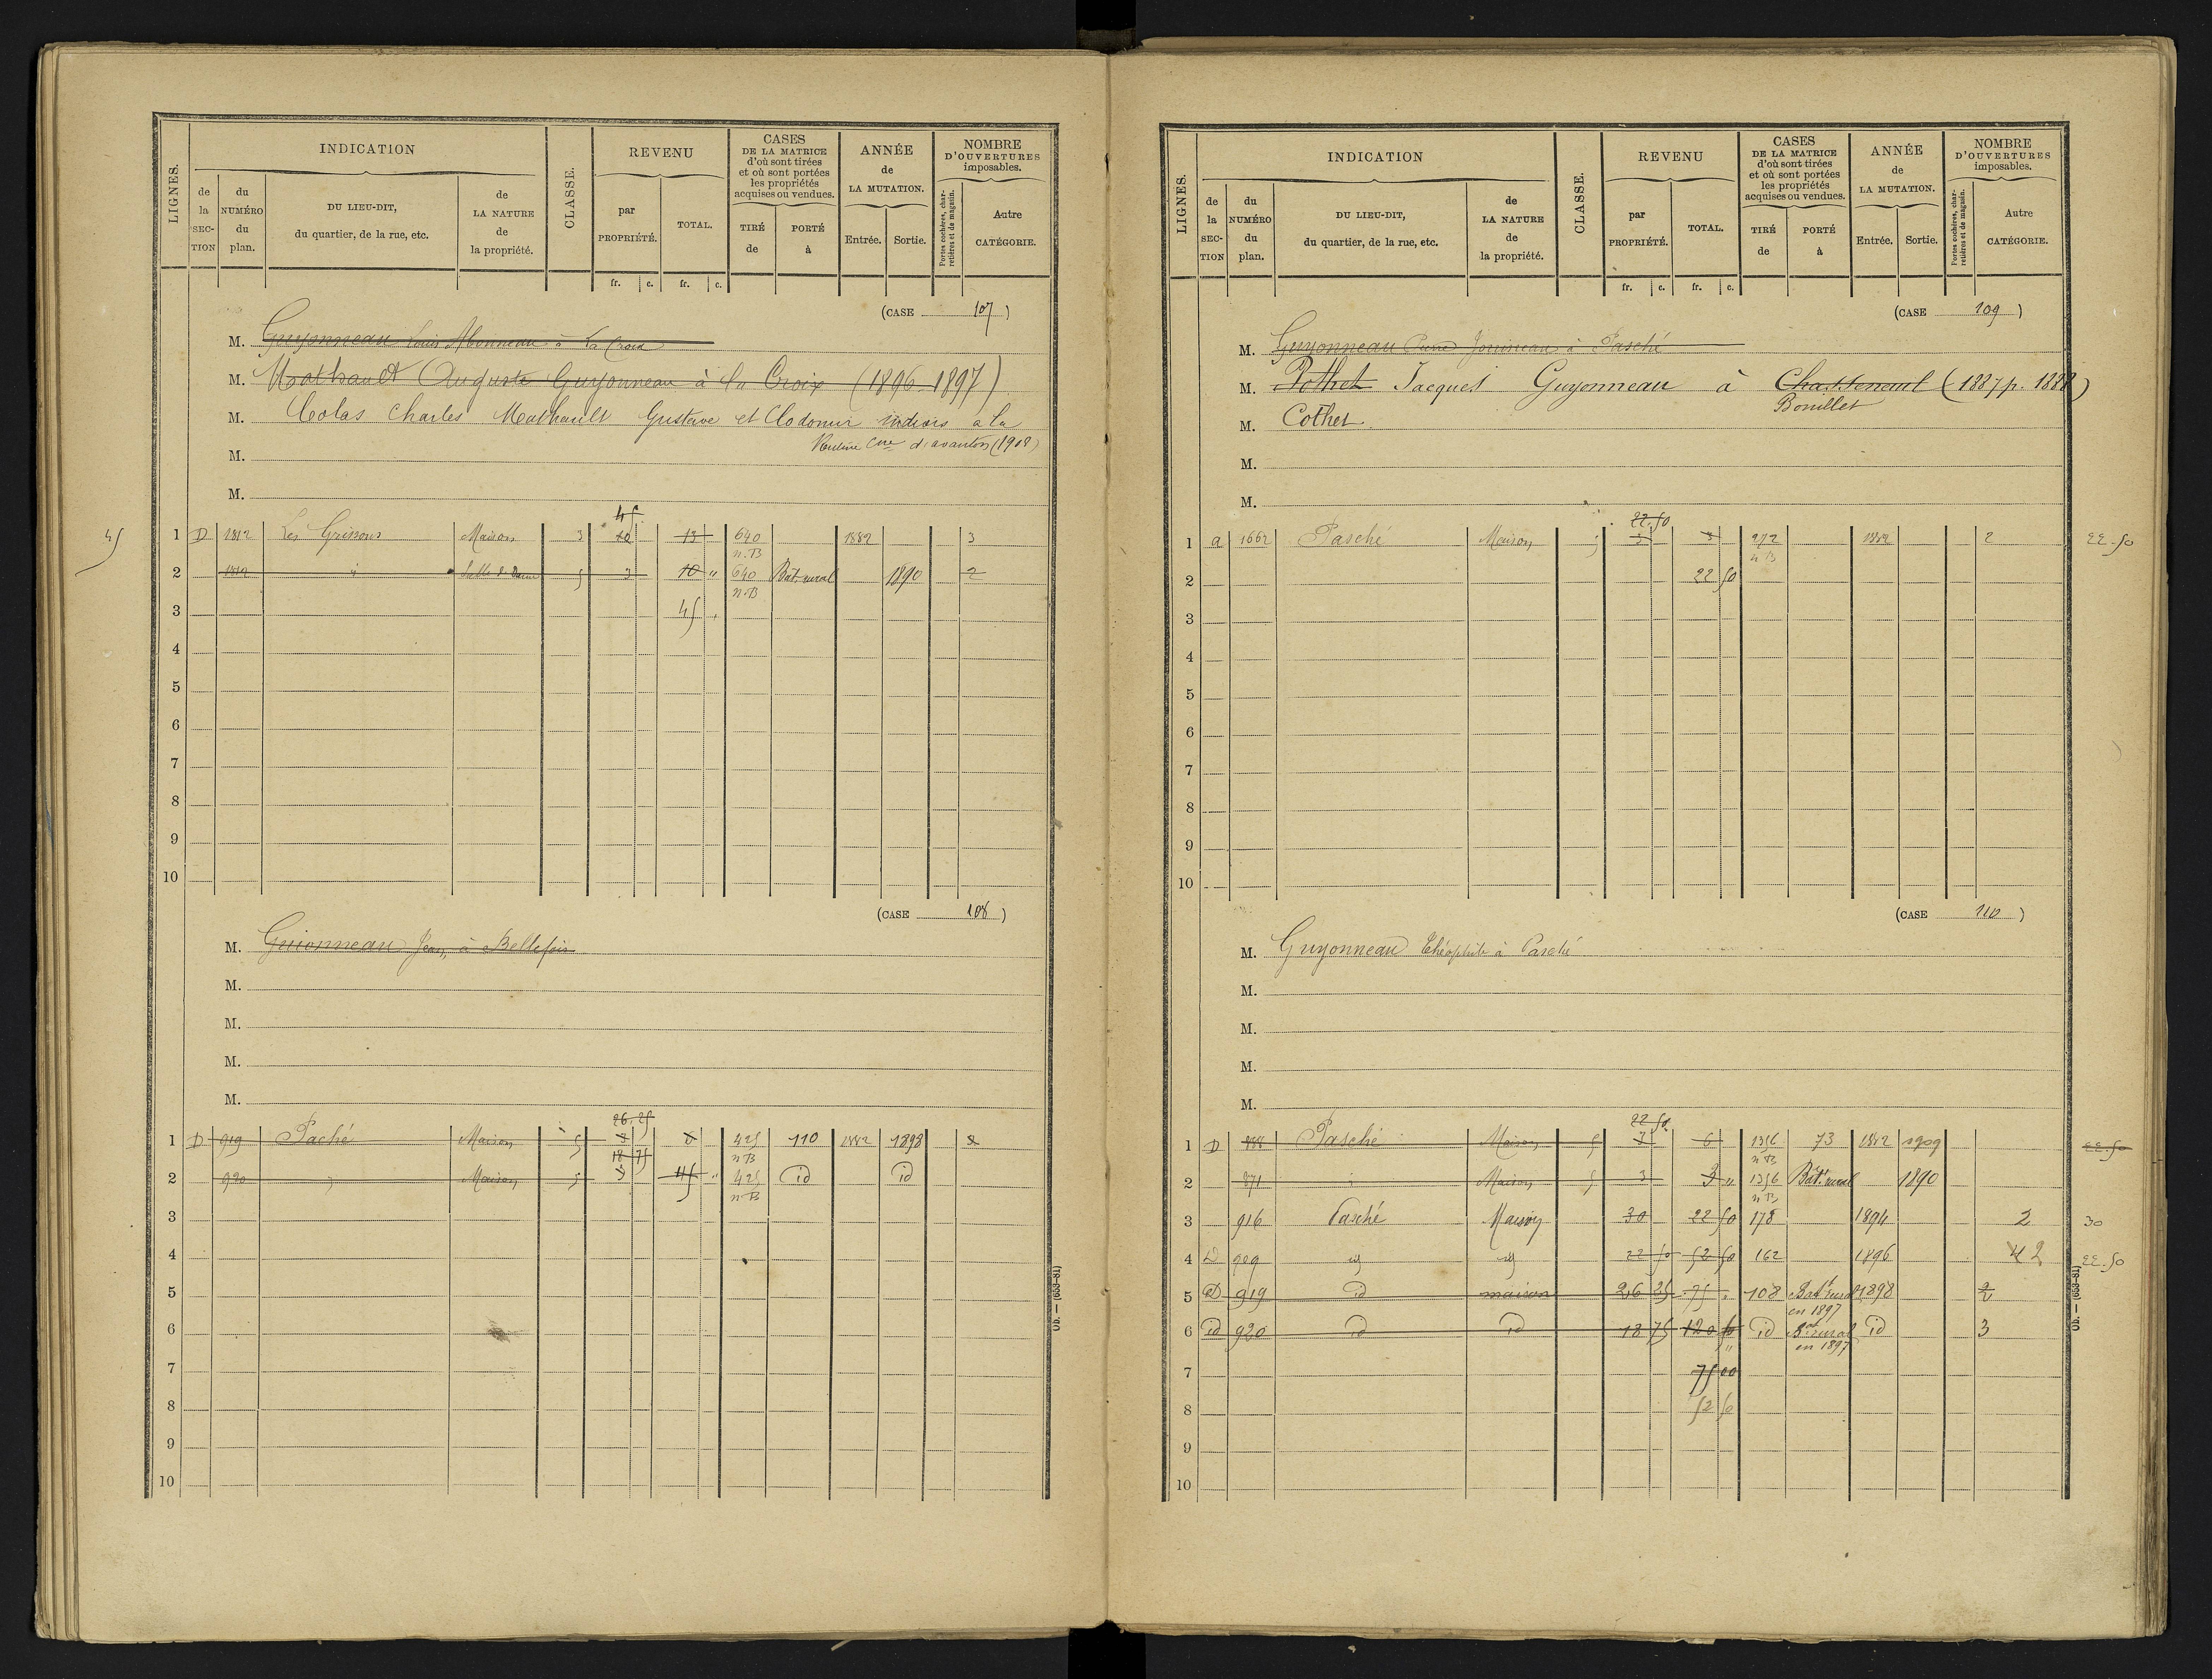 LIGNES. INDICATION CLASSE. REVENU CASES DE LA MATRICE d'où sont tirées et où sont portées les propriétés acquises ou vendues. ANNÉE de LA MUTATION. NOMBRE D'OUVERTURES imposables.
de la SECTION du NUMÉRO du plan. DU LIEU-DIT, du quartier, de la rue, etc. de LA NATURE de la propriété. par PROPRIÉTÉ. TOTAL. TIRÉ de PORTÉ à Entrée. Sortie. Portes cochères, charretières et de magasin. Autre CATÉGORIE.
fr. c. fr. c.
(CASE 107)
M. Guyonneau Louis à La Croix
M. Mathault Auguste Guyonneau à la Croix (1896-1897)
M. Colas Charles Mathault Gustave et Clodomir indivis à la
M. Cne d'avanton (1908)
M.
45
45
1 D 1812 Les Grissons Maison 3 10 13 640 1882 3
n.B
2 1812 5 3 10 " 640 Bât. rural 1890 2
n.B
3 45
4
5
6
7
8
9
10
(CASE 108)
M. Guionneau Jean, à Bellefois
M.
M.
M.
M.
26.25
1 D 919 Paché Maison 5 8 425 110 1882 1898 2
18 75 n B
2 920 Maison 5 45 " 425 id id
n B
3
4
5
6
7
8
9
10
Ob. — (653-81)
LIGNES. INDICATION CLASSE. REVENU CASES DE LA MATRICE d'où sont tirées et où sont portées les propriétés acquises ou vendues. ANNÉE de LA MUTATION. NOMBRE D'OUVERTURES imposables.
de la SECTION du NUMÉRO du plan. DU LIEU-DIT, du quartier, de la rue, etc. de LA NATURE de la propriété. par PROPRIÉTÉ. TOTAL. TIRÉ de PORTÉ à Entrée. Sortie. Portes cochères, charretières et de magasin. Autre CATÉGORIE.
fr. c. fr. c.
(CASE 109)
M. Guyonneau Pierre à Pasché
M. Pothet Jacques Guyonneau à Chasseneuil (1887 p. 1888)
Bouillet
M. Cothet
M.
M.
22.50
1 a 1662 Pasché Maison 5 3 3 272 1882 2 22.50
n B
2 22 50
3
4
5
6
7
8
9
10
(CASE 110)
M. Guyonneau Théophile à Pasché
M.
M.
M.
M.
22 50
1 D 888 Pasché Maison 5 3 6 1356 73 1882 1909 22.50
n B
2 871 Maison 5 3 3 " 1356 Bât. rural 1890
n B
3 916 Pasché Maison 30 22 50 178 1894 2 30
4 D 909 id id 22 50 52 50 162 1896 42 22.50
5 D 919 id maison 26 25 75 108 Bât rural 1898 2
en 1897
6 id 920 id id 18 75 120 id Bt rural id 3
en 1897
7 75 00
8 52 50
9
10
Ob. — (653-81)